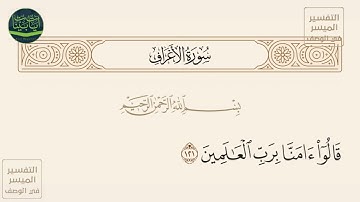 التفسير
الميسر
في الوصف
سُورَةُ الأَعْرَافِ
بِسْمِ اللَّهِ الرَّحْمَٰنِ الرَّحِيمِ
قَالُوٓا۟ ءَامَنَّا بِرَبِّ ٱلْعَـٰلَمِينَ ١٢١
التفسير
الميسر
في الوصف